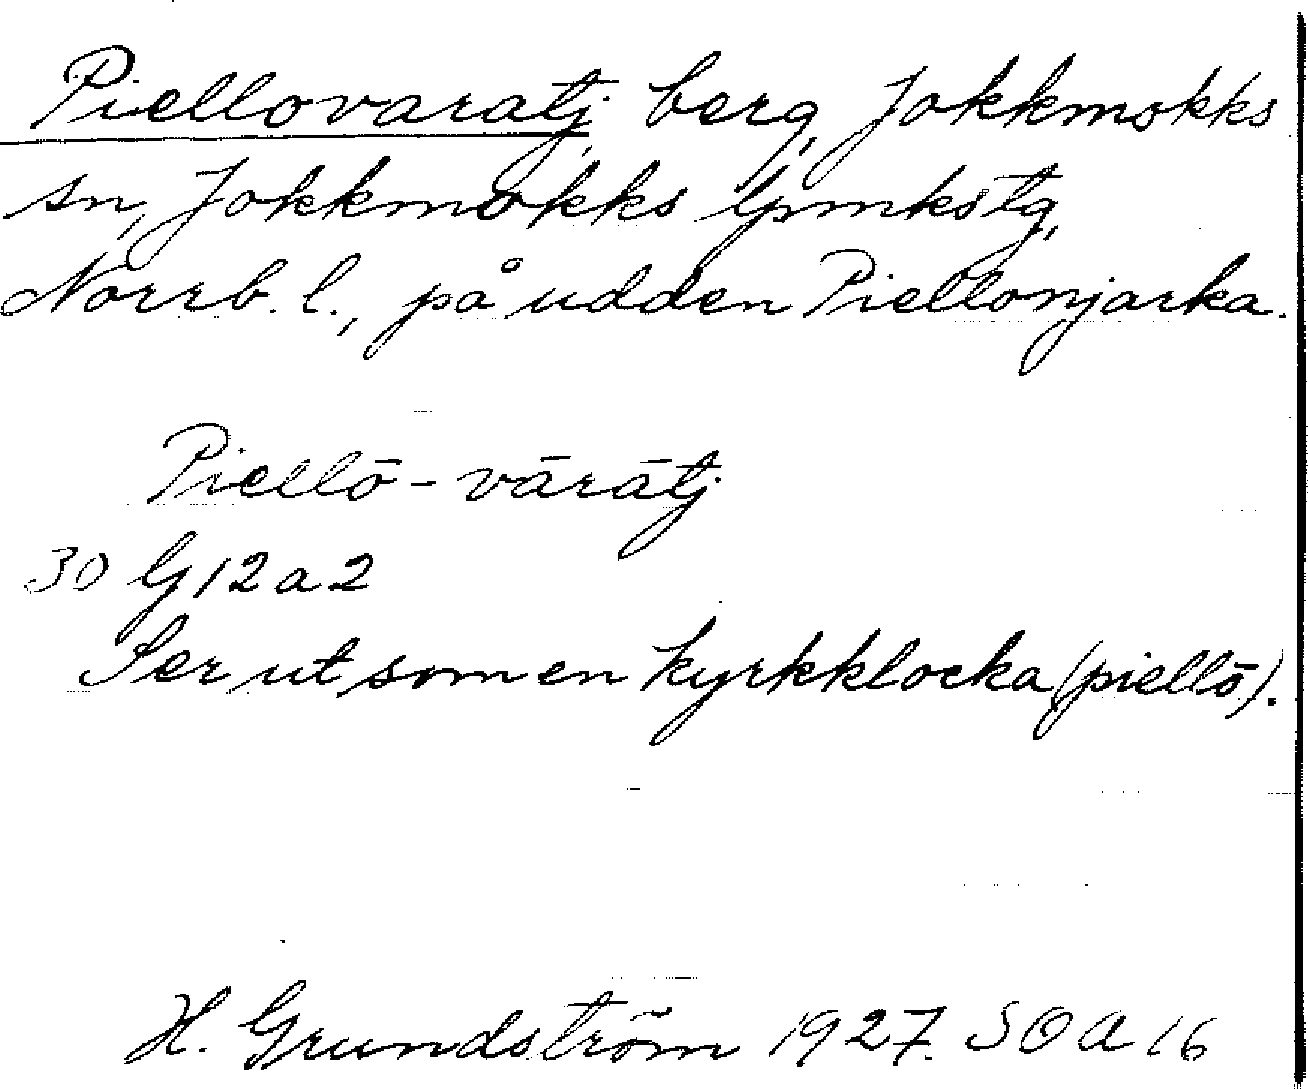 Piellovaratj, berg, Jokkmokks
sn, Jokkmokks lpmkstg,
Norrb. l., på udden Piellonjarka.
Piellō-vārātj
30 G 12 a 2
Ser ut som en kyrkklocka (piellō).
H. Grundström 1927. SOA 16